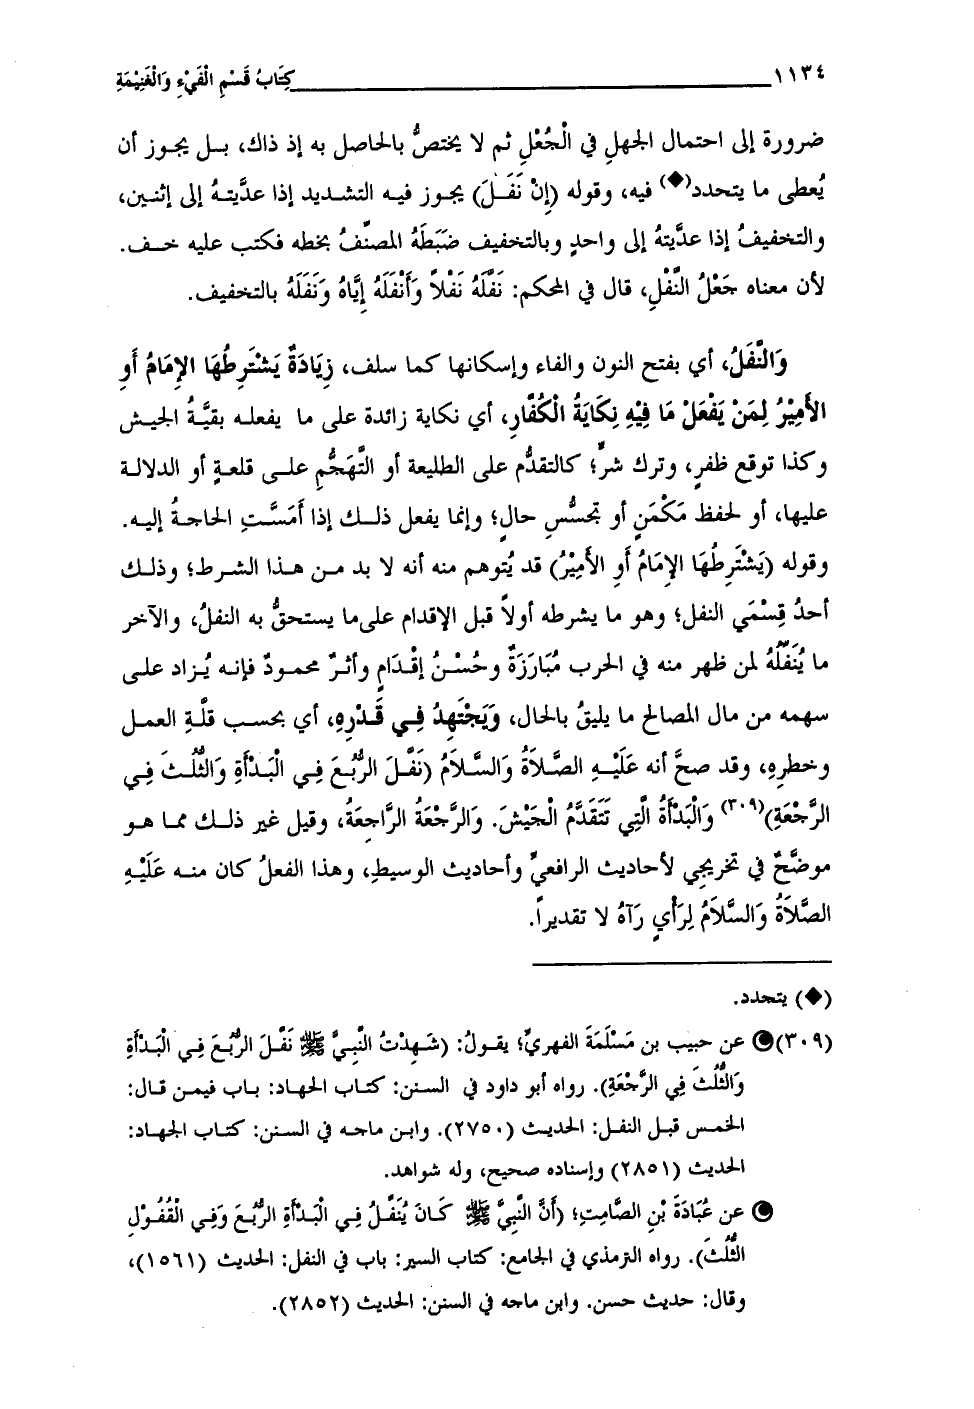 ١١٣٤ كِتَابُ قَسْمِ الْفَيْءِ وَالْغَنِيْمَةِ
ضرورة إلى احتمال الجهلِ في الْجُعْلِ ثم لا يختصُّ بالحاصل به إذ ذاك، بـل يجوز أن
يُعطى ما يتحدد(◆) فيه، وقوله (إِنْ نَفَـلَ) يجـوز فيـه التشـديد إذا عدَّيتـهُ إلى إثنـين،
والتخفيفُ إذا عدَّيتهُ إلى واحدٍ وبالتخفيف ضَبَطَهُ المصنّفُ بخطه فكتب عليه خـف.
لأن معناه جَعْلُ النَّفْلِ، قال في المحكم: نَفَّلَهُ نَفْلاً وَأَنْفَلَهُ إِيَّاهُ وَنَفَلَهُ بالتخفيف.
وَالنَّفَلُ، أي بفتح النون والفاء وإسكانها كما سلف، زِيَادَةٌ يَشْتَرِطُهَا الإِمَامُ أَوِ
الأَمِيْرُ لِمَنْ يَفْعَلْ مَا فِيْهِ نِكَايَةُ الْكُفَّارِ، أي نكاية زائدة على ما يفعلـه بقيَّـةُ الجيـش
وكذا توقع ظفرٍ، وترك شرٍّ؛ كالتقدُّم على الطليعة أو التَّهَجُّمِ علـى قلعـةٍ أو الدلالـة
عليها، أو لحفظ مَكْمَنٍ أو تجسُّسِ حالٍ؛ وإنما يفعل ذلـك إذا أَمَسَّـتِ الحاجـةُ إليـه.
وقوله (يَشْتَرِطُهَا الإِمَامُ أَوِ الأَمِيْرُ) قد يُتوهم منه أنه لا بد مـن هـذا الشـرط؛ وذلـك
أحدُ قِسْمَي النفل؛ وهو ما يشرطه أولاً قبل الإقدام على ما يستحقُّ به النفلُ، والآخر
ما يُنَفِّلُهُ لمن ظهر منه في الحرب مُبَارَزَةٌ وحُسْـنُ إِقْـدَامٍ وأثـرٌ محمـودٌ فإنـه يُـزاد علـى
سهمه من مال المصالح ما يليقُ بالحال، وَيَجْتَهِدُ فِـي قَـدْرِهِ، أي بحسـب قلَّـةِ العمـل
وخطرِهِ، وقد صحَّ أنه عَلَيْـهِ الصَّـلاَةُ وَالسَّـلاَمُ (نَفَّـلَ الرُّبُـعَ فِـي الْبَـدْأَةِ وَالثُّلُـثَ فِـي
الرَّجْعَةِ)(٣٠٩) وَالْبَدْأَةُ الَّتِي تَتَقَدَّمُ الْجَيْشَ. وَالرَّجْعَةُ الرَّاجِعَةُ، وقيل غير ذلـك ممـا هـو
موضَّحٌ في تخريجِي لأحاديث الرافعيِّ وأحاديث الوسيطِ، وهذا الفعلُ كان منـه عَلَيْـهِ
الصَّلاَةُ وَالسَّلاَمُ لِرَأْيٍ رَآهُ لا تقديراً.
(◆) يتحدد.
(٣٠٩) عن حبيب بن مَسْلَمَةَ الفهريِّ؛ يقولُ: (شَـهِدْتُ النَّبِـيَّ ﷺ نَفَّـلَ الرُّبُـعَ فِـي الْبَـدْأَةِ
وَالثُّلُثَ فِي الرَّجْعَةِ). رواه أبو داود في السنن: كتاب الجهاد: بـاب فيمـن قـال:
الخمـس قبـل النفـل: الحديـث (٢٧٥٠). وابـن ماجـه في السـنن: كتـاب الجهـاد:
الحديث (٢٨٥١) وإسناده صحيح، وله شواهد.
عن عُبَادَةَ بْنِ الصَّامِتِ؛ (أَنَّ النَّبِيَّ ﷺ كَـانَ يُنَفِّـلُ فِـي الْبَـدْأَةِ الرُّبُـعَ وَفِـي الْقُفُـوْلِ
الثُّلُثَ). رواه الترمذي في الجامع: كتاب السير: باب في النفل: الحديث (١٥٦١)،
وقال: حديث حسن. وابن ماجه في السنن: الحديث (٢٨٥٢).